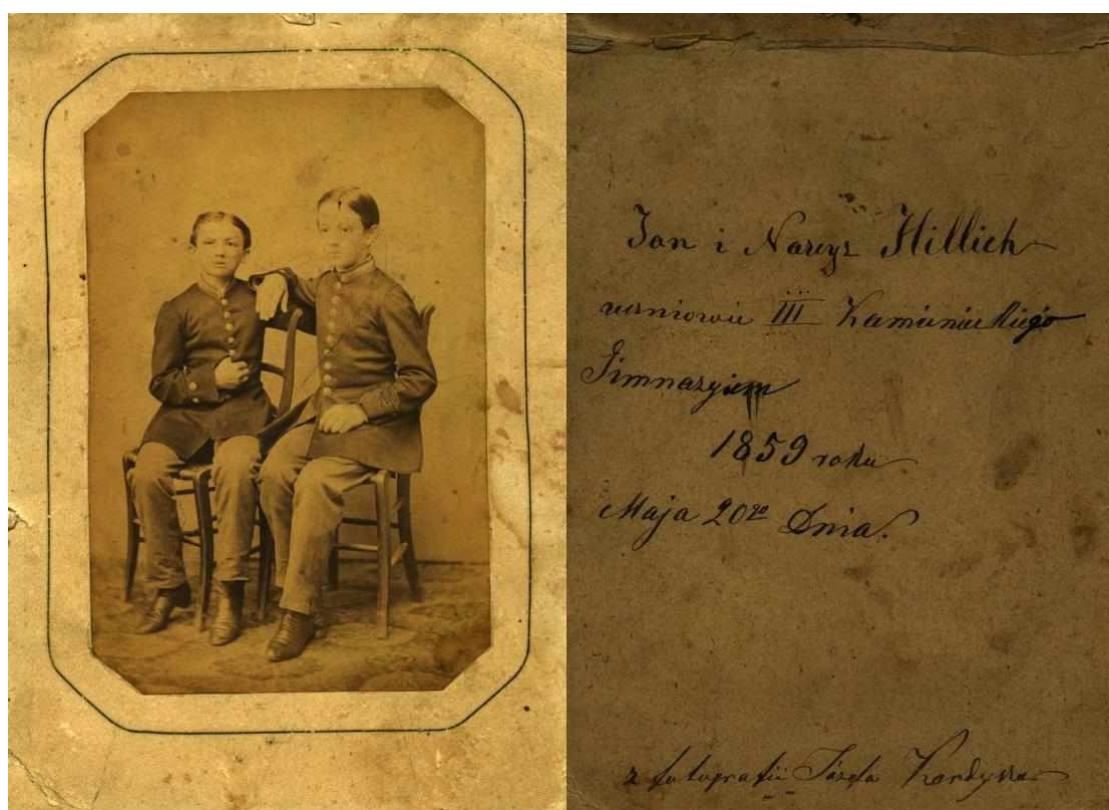 Jan i Narcyz Hillich
uczniowie III Kamienieckiego
Gimnazyum
1859 roku
Maja 20go Dnia.
z fotografii Józefa Kordysza